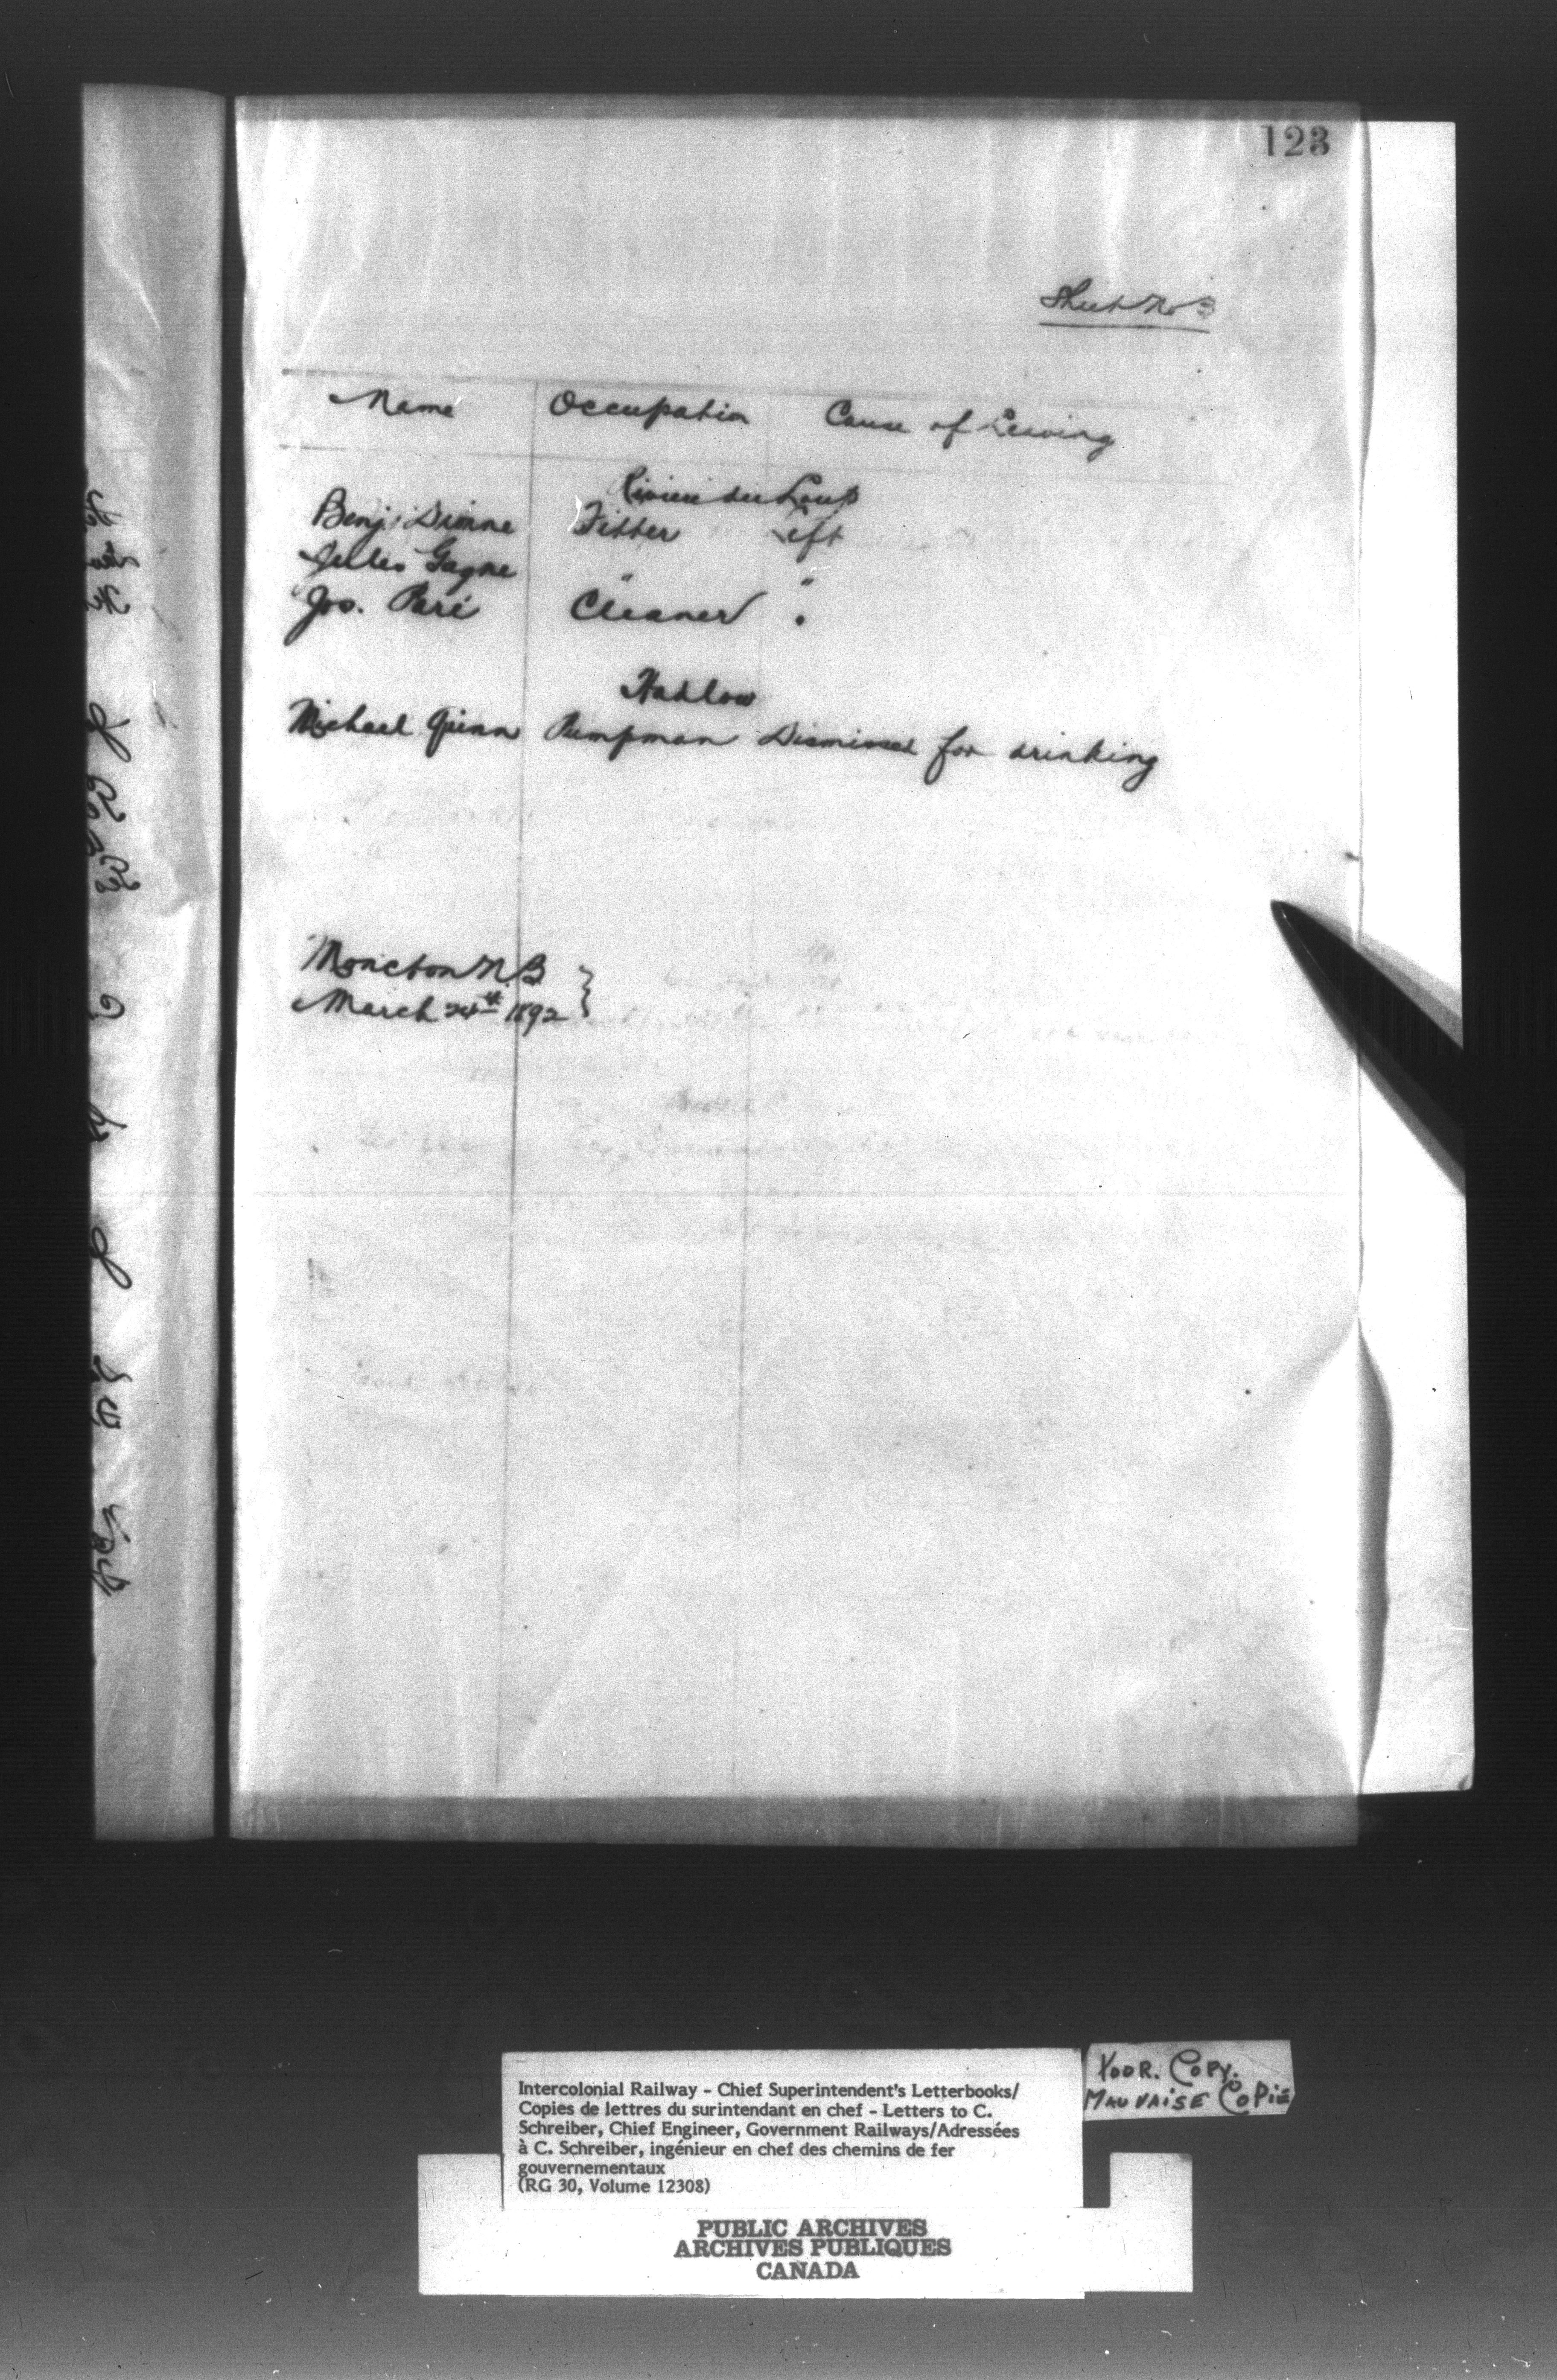 123
Sheet No 3
Name Occupation Cause of Leaving
Riviere du Loup
Benj. Dionne Fitter Left
Jules Gagne " "
Jos. Paré Cleaner "
Hadlow
Michael Quinn Pumpman Dismissed for drinking
Moncton N.B }
March 24th 1892
Intercolonial Railway - Chief Superintendent's Letterbooks/
Copies de lettres du surintendant en chef - Letters to C.
Schreiber, Chief Engineer, Government Railways/Adressées
à C. Schreiber, ingénieur en chef des chemins de fer
gouvernementaux
(RG 30, Volume 12308)
POOR. COPY.
MAUVAISE COPIE
PUBLIC ARCHIVES
ARCHIVES PUBLIQUES
CANADA